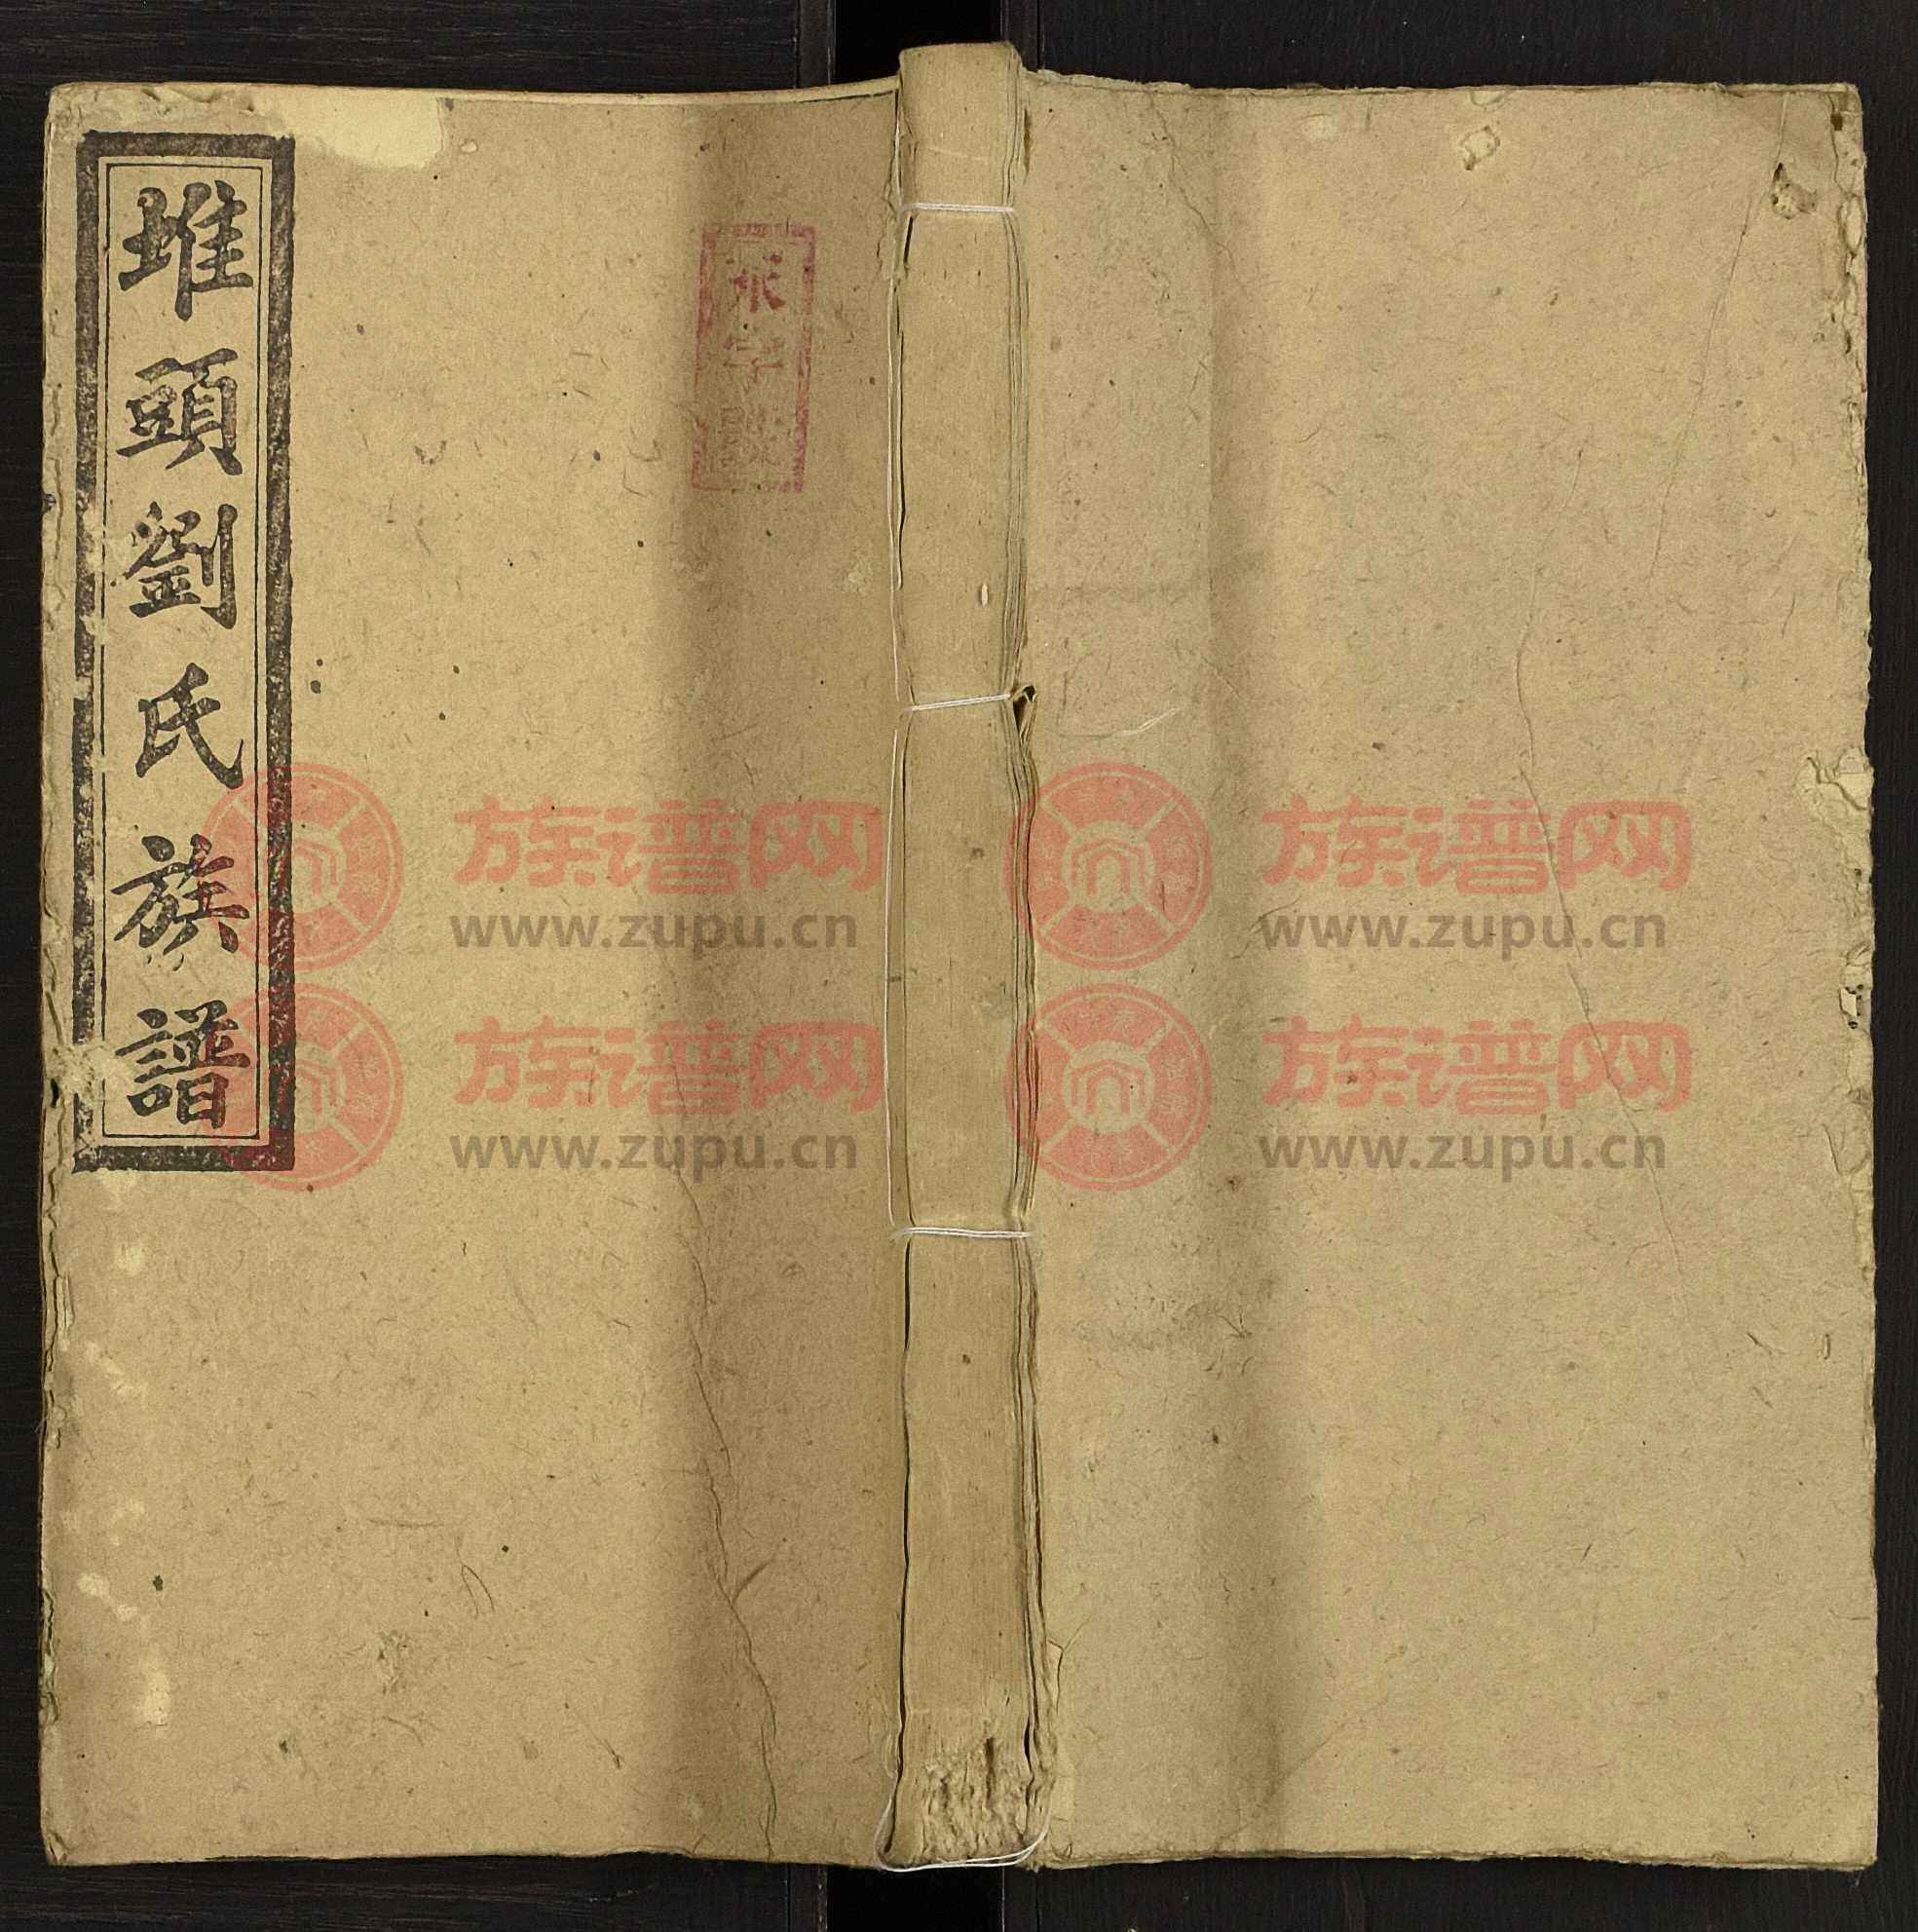 堆頭劉氏族譜
族谱网
www.zupu.cn
族谱网
www.zupu.cn
族谱网
www.zupu.cn
族谱网
www.zupu.cn